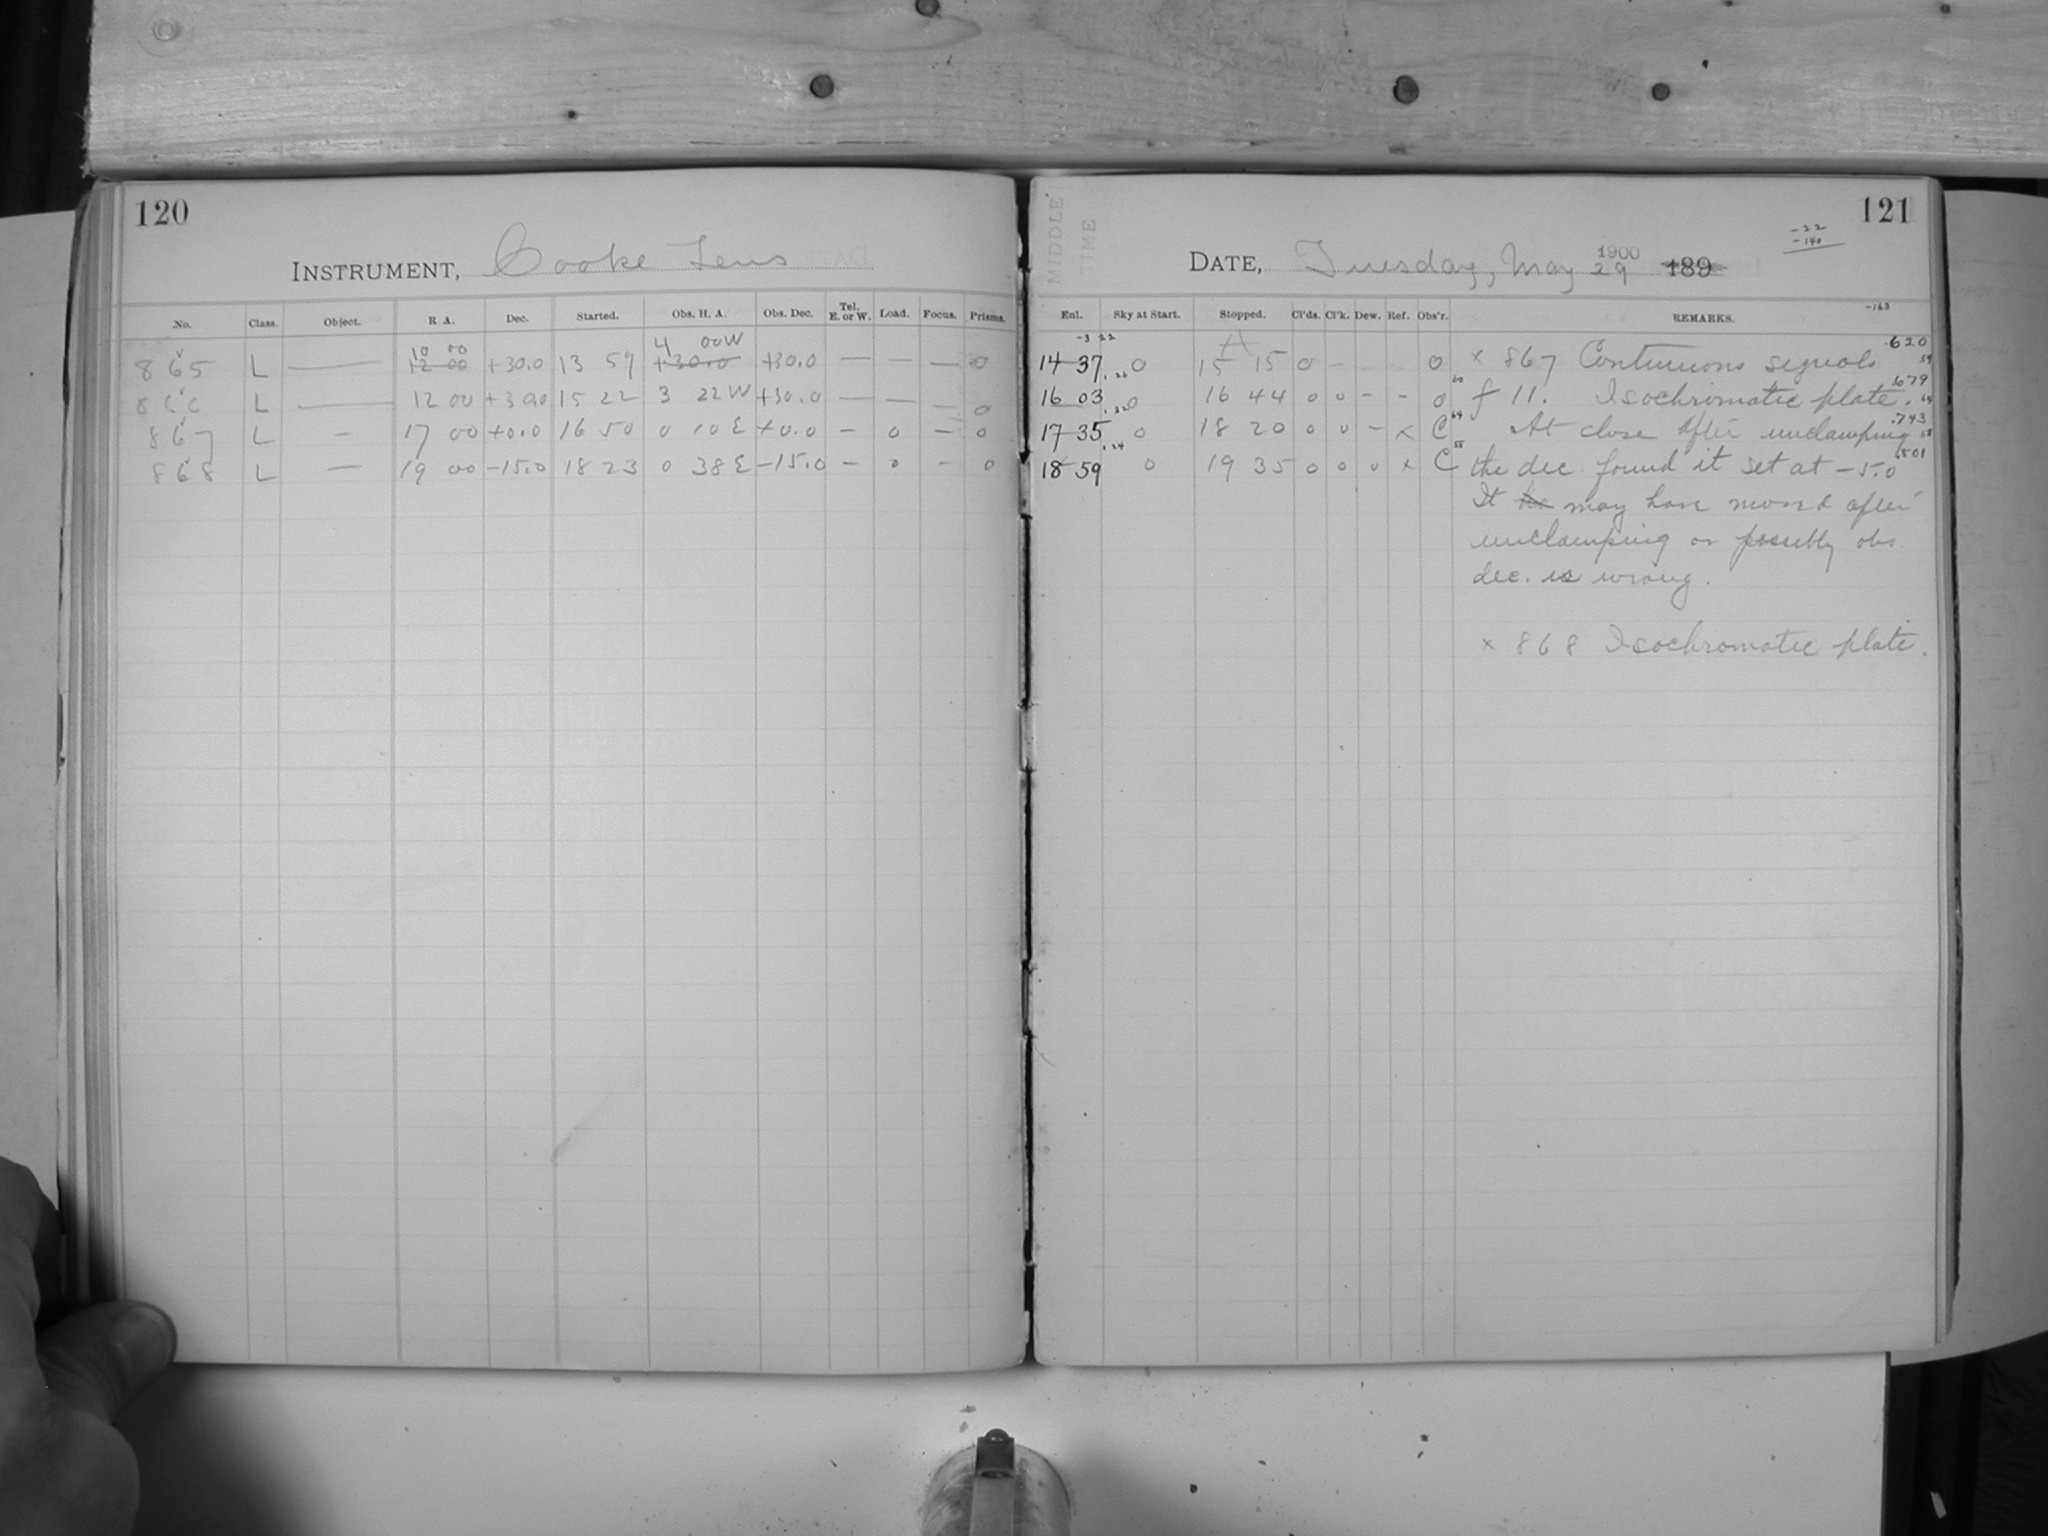 120
INSTRUMENT, Cooke Lens
No. Class. Object. R. A. Dec. Started. Obs. H. A. Obs. Dec. Tel. E. or W. Load. Focus. Prisms.
10 00 4 00W
865 L — 12 00 +30.0 13 59 +30.0 +30.0 — — — 0
866 L — 12 00 +30.0 15 22 3 22W +30.0 — — — 0
867 L — 17 00 +0.0 16 50 0 10E +0.0 — 0 — 0
868 L — 19 00 -15.0 18 23 0 38E -15.0 — 0 — 0
121
MIDDLE TIME
-22
-140
-163
1900
DATE, Tuesday, May 29 189
Enl. Sky at Start. Stopped. Cl'ds. Cl'k. Dew. Ref. Obs'r. REMARKS.
-3 22
14 37 .26 0 15 15 0 - 0 × 867 Continuous signals .620 59
16 03 .32 0 16 44 0 0 - - 0 60 f 11. Isochromatic plate. .679 64
17 35 .24 0 18 20 0 0 - × C 64 At close after unclamping .743 58
18 59 0 19 35 0 0 0 × C 58 the dec. found it set at -5.0 .801
It may have moved after
unclamping or possibly obs.
dec. is wrong.
× 868 Isochromatic plate.